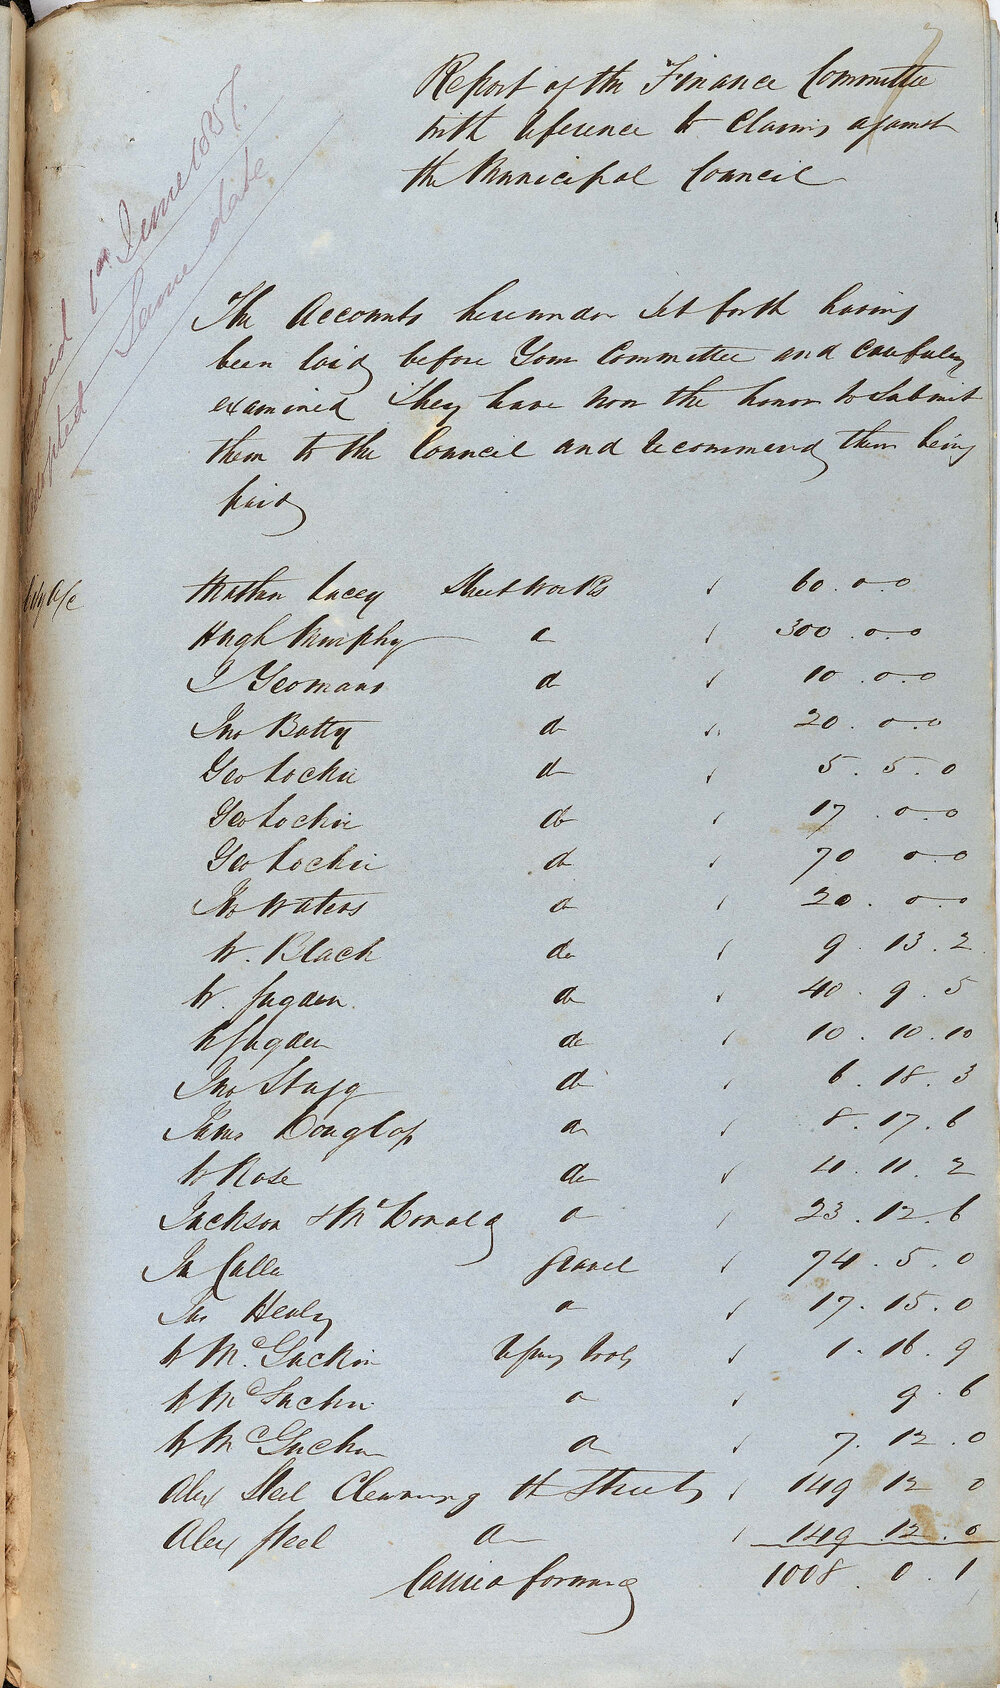 7
Report of the Finance Committee
with reference to Claims against
the Municipal Council
1st June 1857.
adopted Same date
The Accounts hereunder set forth having
been laid before Your Committee and carefully
examined They have now the honor to submit
them to the Council and recommend them being
paid
City A/c
Nathan Lacey Street Works 60 . 0 - 0
Hugh Murphy do 300 . 0 . 0
J Yeomans do 10 . 0 . 0
Jno Batty do 20 . 0 . 0
Geo Lochie do 5 . 5 . 0
Geo Lochie do 17 . 0 - 0
Geo Lochie do 70 0 - 0
Jno Waters do 20 . 0 . 0
W. Black do 9 . 13 . 2
W. Jugden do 40 . 9 . 5
W Jugden do 10 . 10 . 10
Jno Stagg do 6 . 18 . 3
James Douglass do 8 . 17 . 6
W Rose do 4 . 11 . 2
Jackson & McDonald do 23 . 12 . 6
Gravel 74 . 5 . 0
Jas Healy do 17 . 15 . 0
W McGuckin 1 . 16 . 9
W McGuckin do 9 . 6
W McGuckin do 7 . 12 . 0
Alex Steel Cleansing St Streets 149 12 0
Alex Steel do 149 12 . 0
Carried forward 1008 . 0 . 1